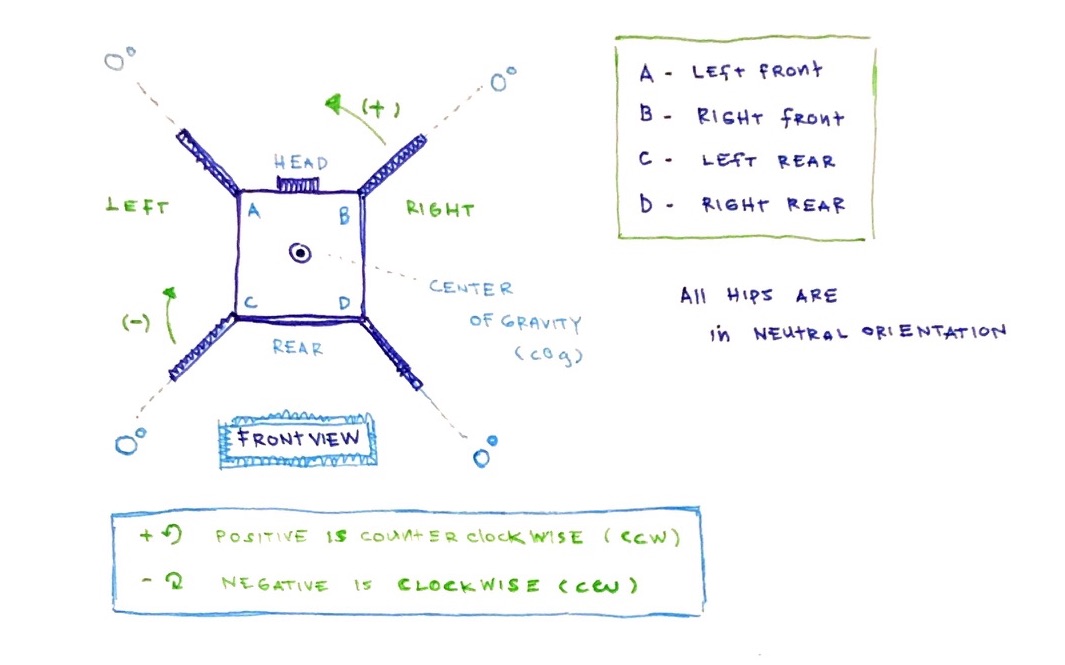 0°
0°
(+)
HEAD
LEFT
A
B
RIGHT
C
D
CENTER
OF GRAVITY
(cog)
(-)
REAR
0°
0°
FRONT VIEW
A - LEFT FRONT
B - RIGHT FRONT
C - LEFT REAR
D - RIGHT REAR
All HIPS ARE
in NEUTRAL ORIENTATION
+ ↺ POSITIVE IS COUNTER CLOCKWISE (CCW)
- ↻ NEGATIVE IS CLOCKWISE (CCW)